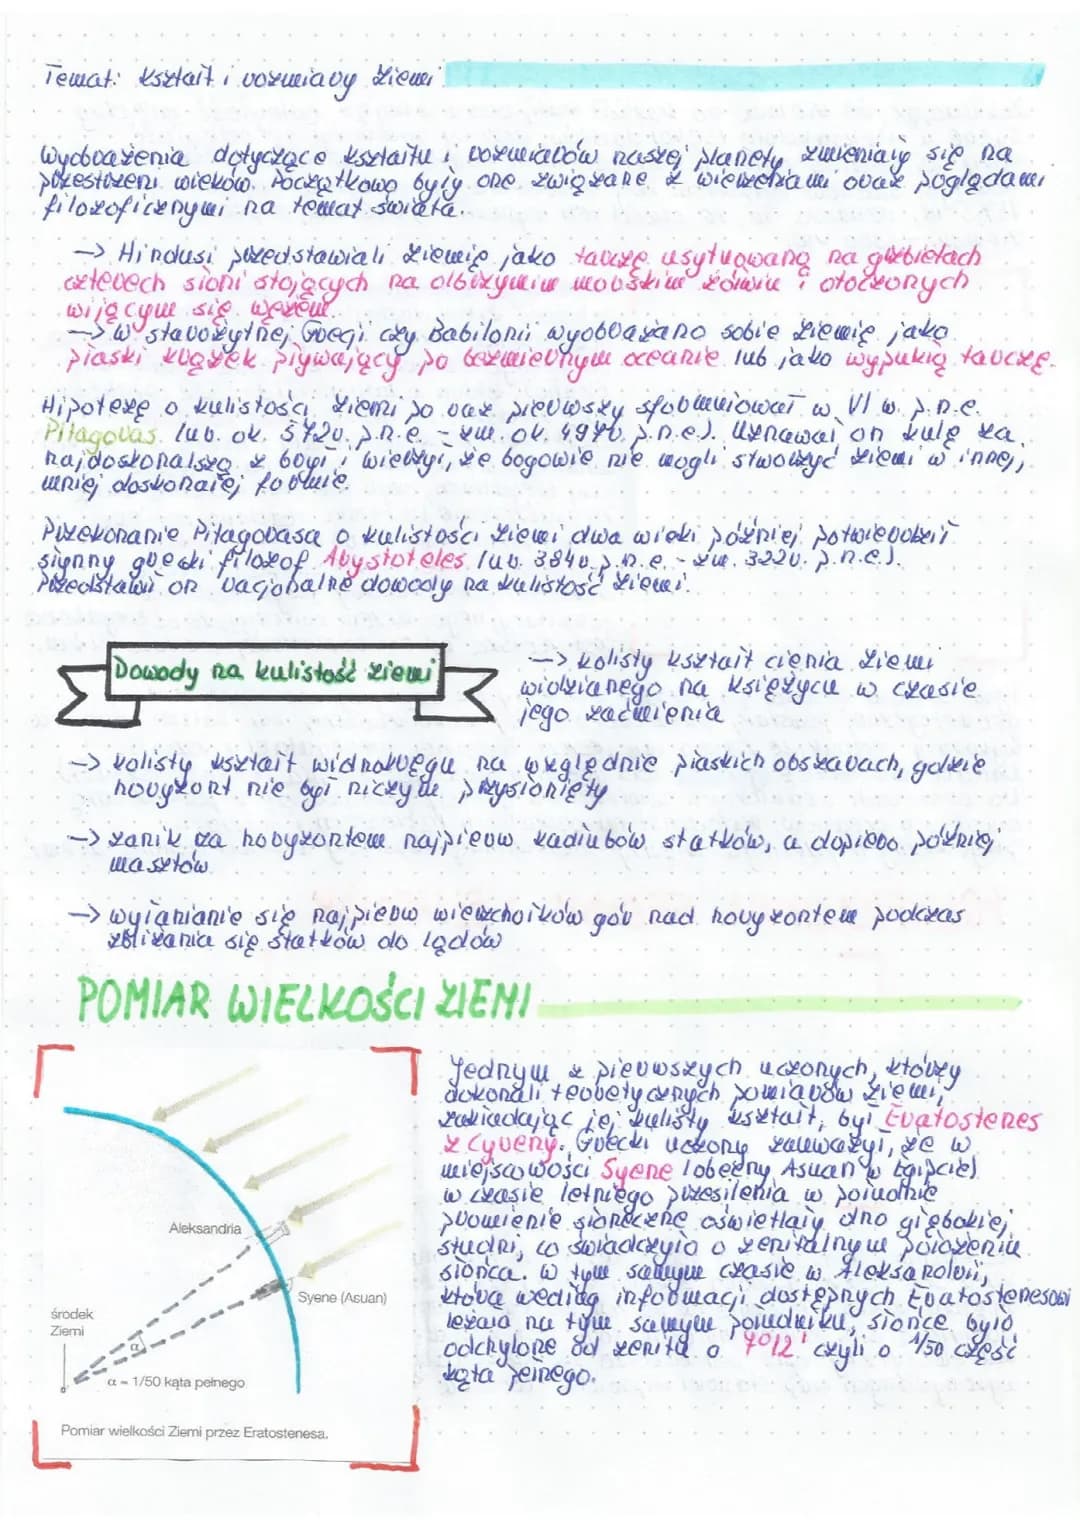 Temat: Kształt i rozmiary Ziemi
Wyobrażenia dotyczące kształtu i rozmiarów naszej planety zmieniały się na
przestrzeni wieków. Początkowo były one związane z wierzeniami oraz poglądami
filozoficznymi na temat świata.
-> Hindusi przedstawiali Ziemię jako tarczę usytuowaną na grzbietach
czterech słoni stojących na olbrzymim morskim żółwiu i otoczonych
wijącym się wężem.
-> w starożytnej Grecji czy Babilonii wyobrażano sobie Ziemię jako
płaski krążek pływający po bezmiernym oceanie lub jako wypukłą tarczę.
Hipotezę o kulistości Ziemi po raz pierwszy sformułował w VI w. p.n.e.
Pitagoras (ur. ok. 572r. p.n.e. - zm. ok. 497r. p.n.e.). Uznawał on kulę za
najdoskonalszą z brył i wierzył, że bogowie nie mogli stworzyć Ziemi w innej,
mniej doskonałej formie.
Przekonanie Pitagorasa o kulistości Ziemi dwa wieki później potwierdził
słynny grecki filozof Arystoteles (ur. 384r. p.n.e. - zm. 322r. p.n.e.).
Przedstawił on racjonalne dowody na kulistość Ziemi.
Dowody na kulistość Ziemi
-> kolisty kształt cienia Ziemi
widzianego na Księżycu w czasie
jego zaćmienia
-> kolisty kształt widnokręgu na względnie płaskich obszarach, gdzie
horyzont nie był niczym przysłonięty
-> zanik za horyzontem najpierw kadłubów statków, a dopiero później
masztów
-> wyłanianie się najpierw wierzchołków gór nad horyzontem podczas
zbliżania się statków do lądów
POMIAR WIELKOŚCI ZIEMI
Jednym z pierwszych uczonych, którzy
dokonali teoretycznych pomiarów Ziemi,
zakładając jej kulisty kształt, był Eratostenes
z Cyreny. Grecki uczony zauważył, że w
miejscowości Syene (obecny Asuan w Egipcie)
w czasie letniego przesilenia w południe
promienie słoneczne oświetlały dno głębokiej
studni, co świadczyło o zenitalnym położeniu
słońca. W tym samym czasie w Aleksandrii,
która według informacji dostępnych Eratostenesowi
leżała na tym samym południku, słońce było
odchylone od zenitu o 7°12' czyli o 1/50 część
kąta pełnego.
Aleksandria
Syene (Asuan)
środek
Ziemi
α
α = 1/50 kąta pełnego
Pomiar wielkości Ziemi przez Eratostenesa.